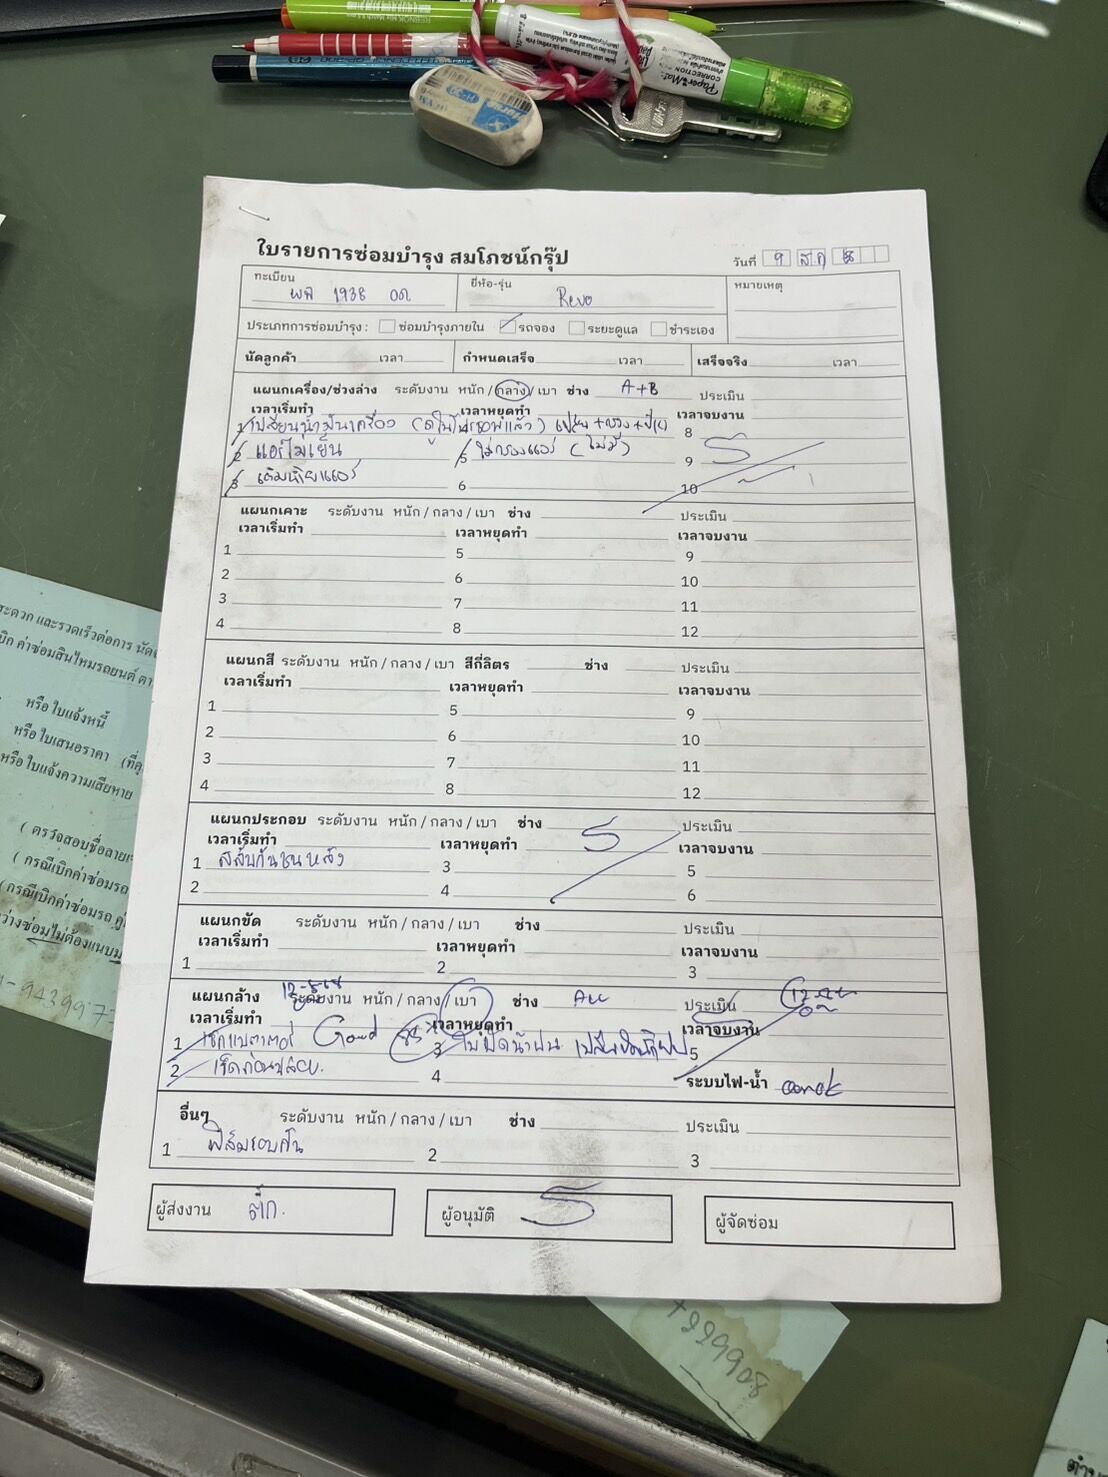 PaperMate
CORRECTION
ใบรายการซ่อมบำรุง สมโภชน์กรุ๊ป
วันที่ 9 สค 68
ทะเบียน 1938
ยี่ห้อ-รุ่น Revo
หมายเหตุ
ประเภทการซ่อมบำรุง : ซ่อมบำรุงภายใน รถจอง ระยะดูแล ชำระเอง
นัดลูกค้า เวลา กำหนดเสร็จ เวลา เสร็จจริง เวลา
แผนกเครื่อง/ช่วงล่าง ระดับงาน หนัก / กลาง / เบา ช่าง A+B ประเมิน
เวลาเริ่มทำ เวลาหยุดทำ เวลาจบงาน
1 เปลี่ยนน้ำมันเครื่อง 8
2 แอร์ไม่เย็น 5 ไส้กรองแอร์ (ไม่มี) 9
3 เติมน้ำยาแอร์ 6 10
แผนกเคาะ ระดับงาน หนัก / กลาง / เบา ช่าง ประเมิน
เวลาเริ่มทำ เวลาหยุดทำ เวลาจบงาน
1 5 9
2 6 10
3 7 11
4 8 12
แผนกสี ระดับงาน หนัก / กลาง / เบา สีกี่ลิตร ช่าง ประเมิน
เวลาเริ่มทำ เวลาหยุดทำ เวลาจบงาน
1 5 9
2 6 10
3 7 11
4 8 12
แผนกประกอบ ระดับงาน หนัก / กลาง / เบา ช่าง ประเมิน
เวลาเริ่มทำ เวลาหยุดทำ เวลาจบงาน
1 สลับกันชนหลัง 3 5
2 4 6
แผนกขัด ระดับงาน หนัก / กลาง / เบา ช่าง ประเมิน
เวลาเริ่มทำ เวลาหยุดทำ เวลาจบงาน
1 2 3
แผนกล้าง ระดับงาน หนัก / กลาง / เบา ช่าง ประเมิน
เวลาเริ่มทำ เวลาหยุดทำ เวลาจบงาน
1 เช็กแบตเตอรี่ Good 3 ใบปัดน้ำฝน 5
2 เช็ดก่อนปล่อย. 4 ระบบไฟ-น้ำ
อื่นๆ ระดับงาน หนัก / กลาง / เบา ช่าง ประเมิน
1 ฟิล์มรอบคัน 2 3
ผู้ส่งงาน ตั๊ก.
ผู้อนุมัติ
ผู้จัดซ่อม
หรือ ใบแจ้งหนี้
หรือ ใบเสนอราคา
หรือ ใบแจ้งความเสียหาย